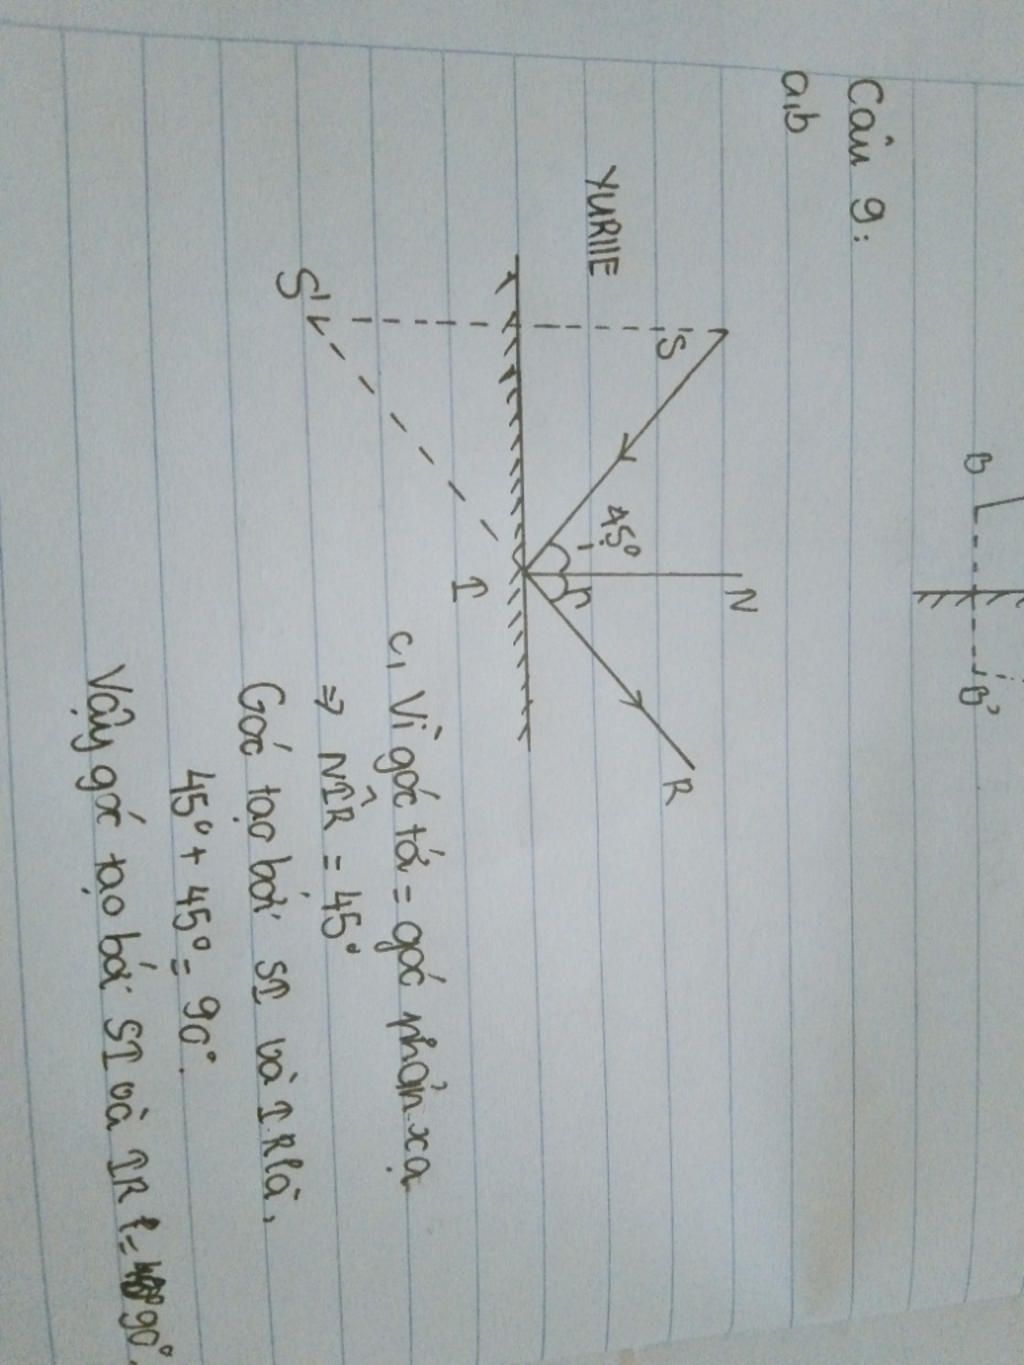 B B'
Câu 9:
a,b
YURIIE
S
N
45°
i r
R
I
S'
c, Vì góc tới = góc phản xạ
⇒ NIR̂ = 45°
Góc tạo bởi SI và IR là,
45° + 45° = 90°.
Vậy góc tạo bởi SI và IR = 90°.